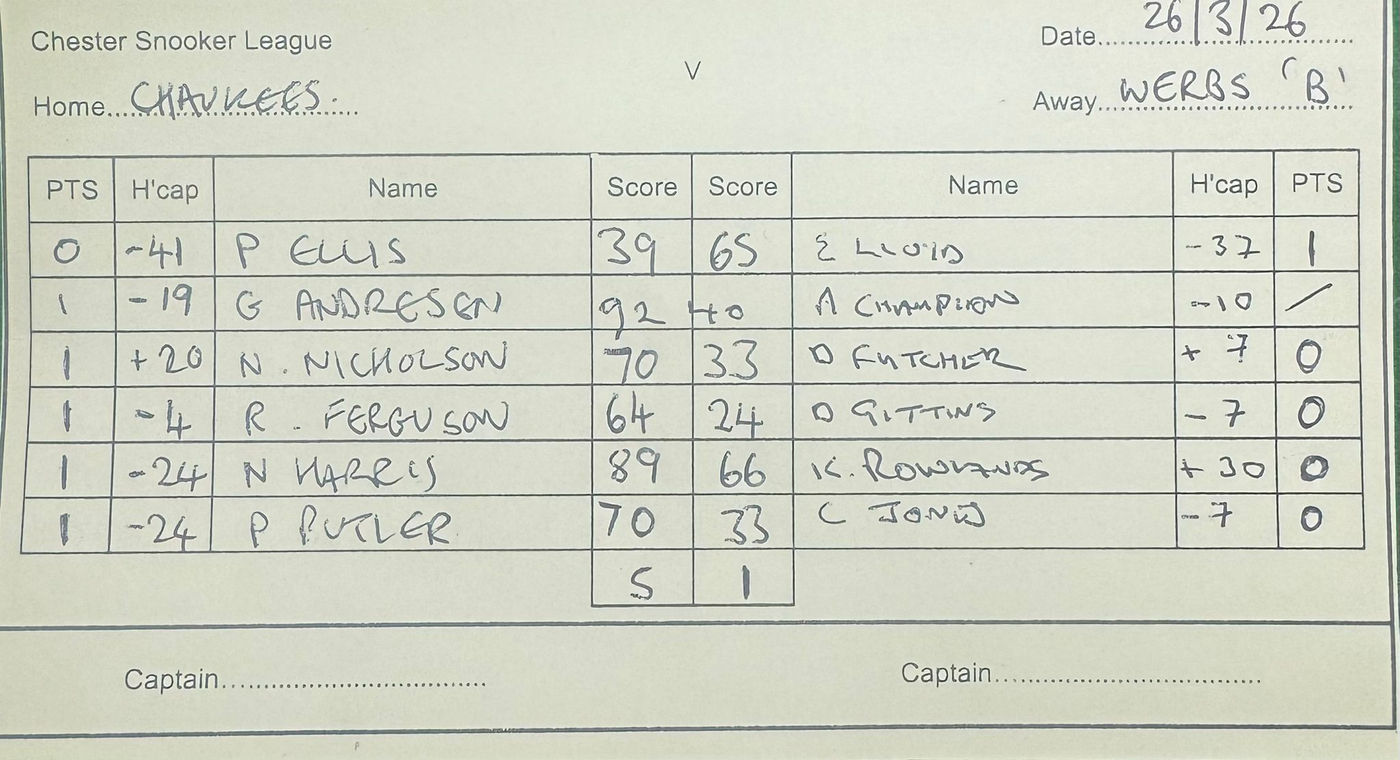 Chester Snooker League
Date 26/3/26
V
Home CHAVKEES.
Away WERBS 'B'
PTS H'cap Name Score Score Name H'cap PTS
0 -41 P ELLIS 39 65 E LLOYD -37 1
1 -19 G ANDRESEN 92 40 A CHAMPION -10 /
1 +20 N. NICHOLSON 70 33 D FUTCHER +7 0
1 -4 R. FERGUSON 64 24 D GITTINS -7 0
1 -24 N HARRIS 89 66 K. ROWLANDS +30 0
1 -24 P BUTLER 70 33 C JONES -7 0
5 1
Captain Captain